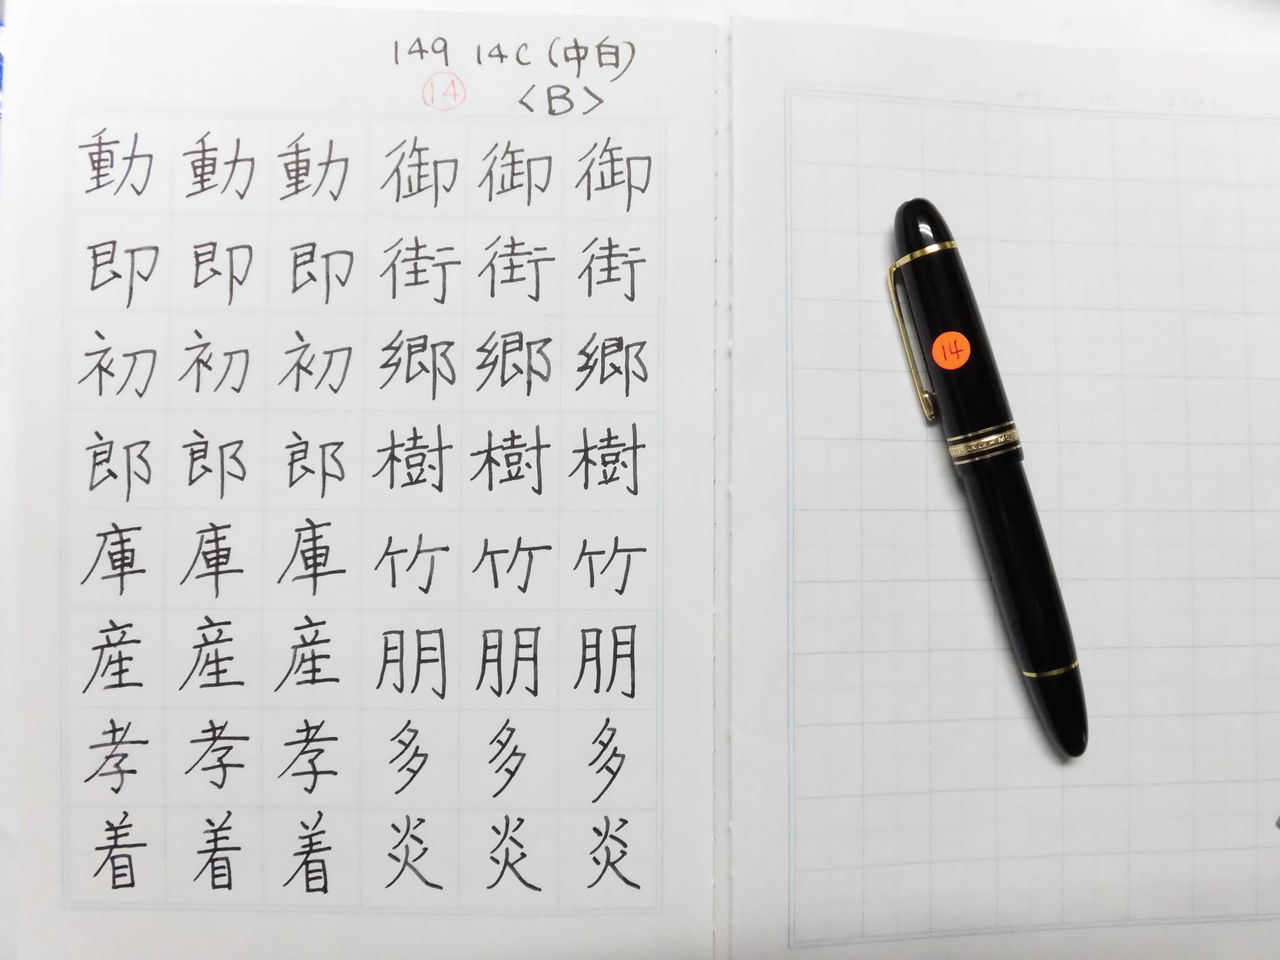 149 14C (中白)
14 <B>
動 動 動 御 御 御
即 即 即 街 街 街
初 初 初 郷 郷 郷
郎 郎 郎 樹 樹 樹
庫 庫 庫 竹 竹 竹
産 産 産 朋 朋 朋
孝 孝 孝 多 多 多
着 着 着 炎 炎 炎
14